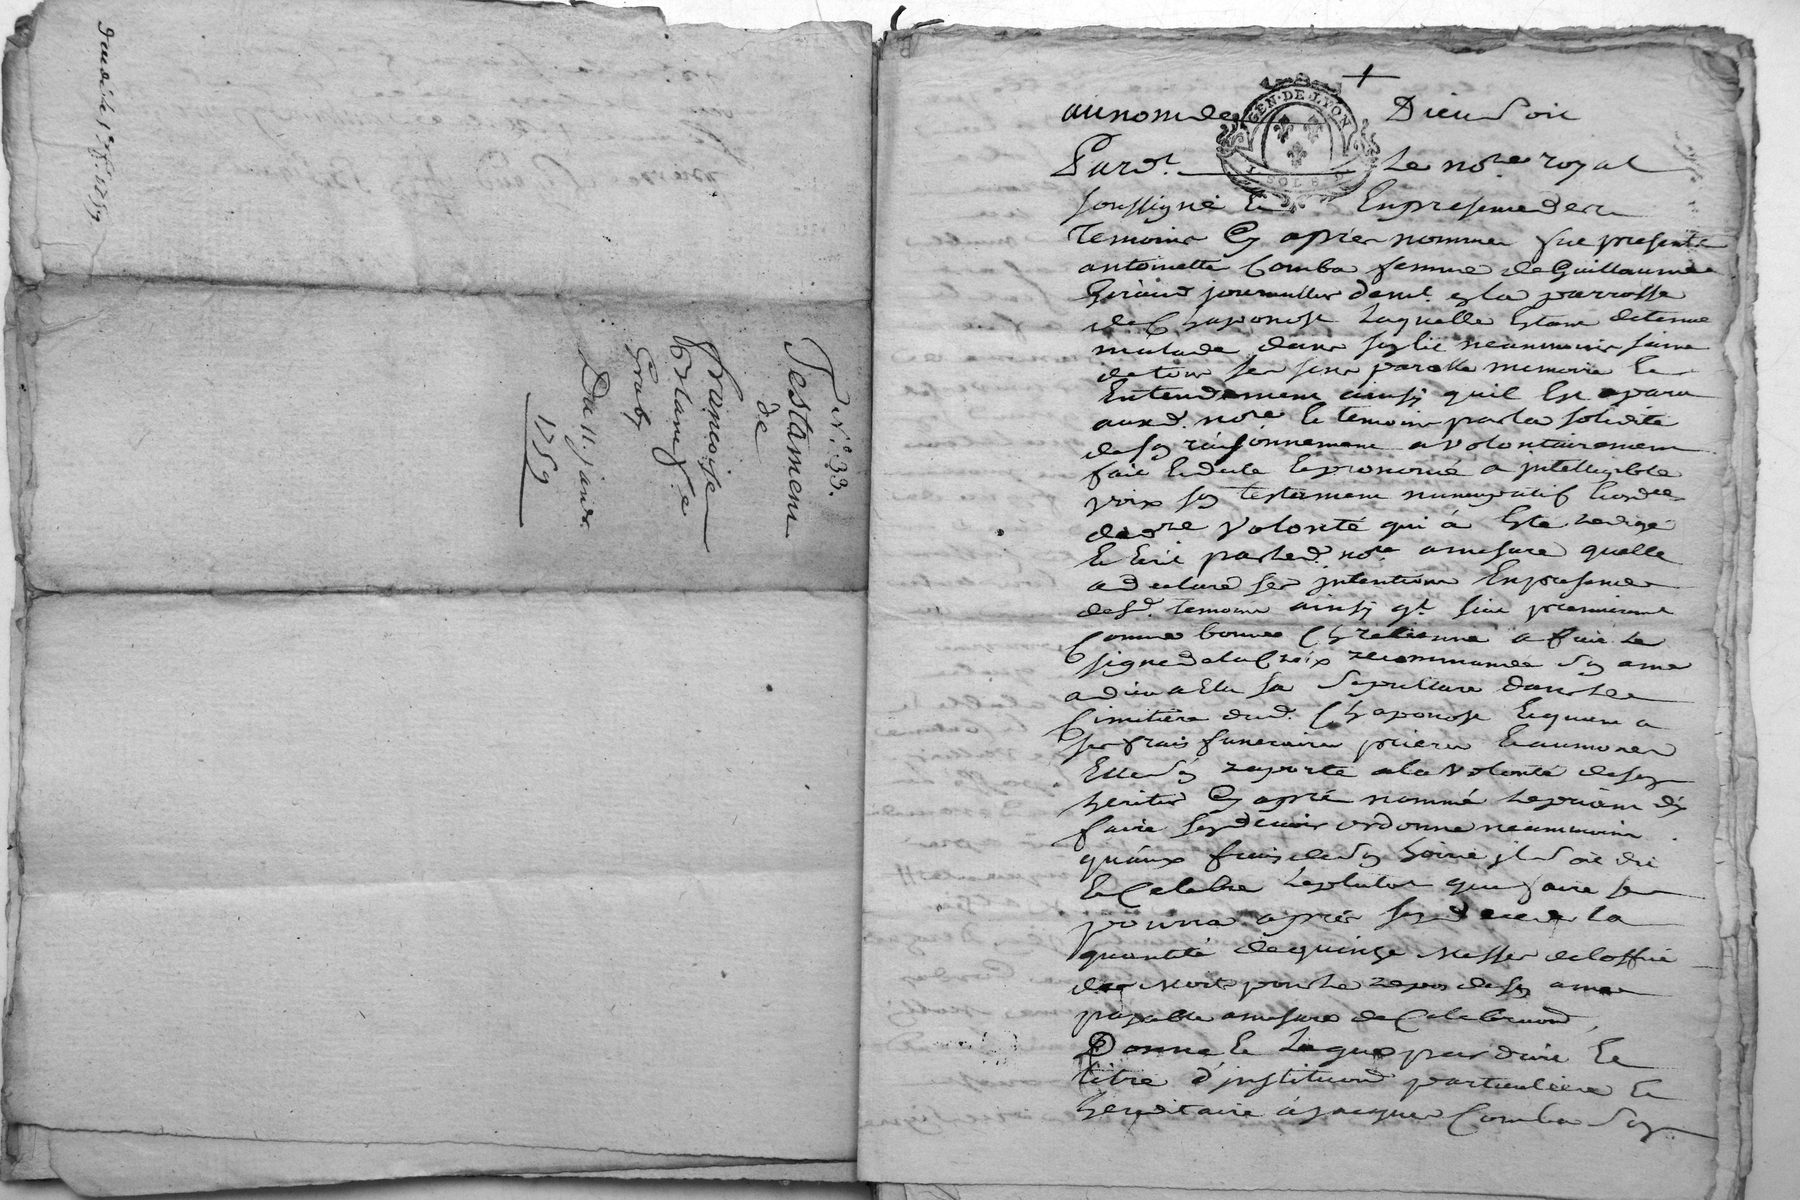 N.° 33.
Testament
de
françoise
du 11. janvr.
1759
au nom de Dieu soit
GEN. DE LYON
Pardt. Le nore royal
soussigné Et En presence des
temoins Cy aprés nommes fut presente
antoinette Comba femme de Guillaume
Giraud journallier demt. en la parroisse
de Chaponost Laquelle Estant detenue
malade dans son lit neanmoins saine
de tous ses sens parolle memoire Et
Entendement ainsy quil Est aparu
auxd. nore Et temoins par la solidité
de son raisonnement a volontairement
fait Et dicté Et prononcé a jntelligible
voix son testament nuncupatif Et ordce
de dre volonté qui á Esté redigé
Et Ecrit par led. nore a mesure quelle
a declaré ses jntentions En presence
desd. temoins ainsy qt. suit premierement
Comme bonne Chretienne a fait Le
signe de la Croix recommandé son ame
a dieu a Elu sa sepulture dans Le
Cimitiere dud. Chaponost Et quant a
ses frais funeraires prieres Et aumones
Elle sen raporte a la volonté de son
heritier Cy aprés nommé Le priant dy
faire son devoir ordonne neanmoins
quáux frais de son hoirie jl soit dit
Et Celebré Le plutot que faire se
pourra aprés son deces la
quantité de quinze Messes de loffice
des Morts pour Le repos de son ame
payable a mesure de Celebration,
Donne Et Legue par droit Et
titre d'jnstitution particuliere Et
hereditaire á jacques Comba son